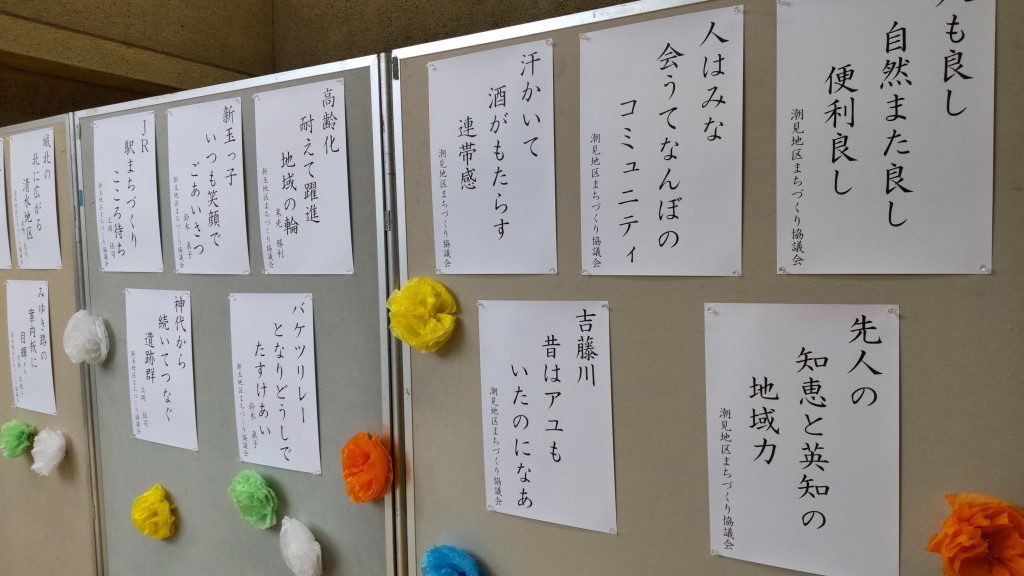 も良し
自然また良し
便利良し
潮見地区まちづくり協議会
人はみな
会うてなんぼの
コミュニティ
潮見地区まちづくり協議会
汗かいて
酒がもたらす
連帯感
潮見地区まちづくり協議会
先人の
知恵と英知の
地域力
潮見地区まちづくり協議会
吉藤川
昔はアユも
いたのになあ
潮見地区まちづくり協議会
高齢化
耐えて躍進
地域の輪
新玉地区まちづくり協議会
新玉っ子
いつも笑顔で
ごあいさつ
新玉地区まちづくり協議会
JR
駅まちづくり
こころ待ち
新玉地区まちづくり協議会
バケツリレー
となりどうしで
たすけあい
新玉地区まちづくり協議会
神代から
続いてつなぐ
遺跡群
新玉地区まちづくり協議会
城北の
北に広がる
清水地区
みゆき路の
案内板に
目輝く